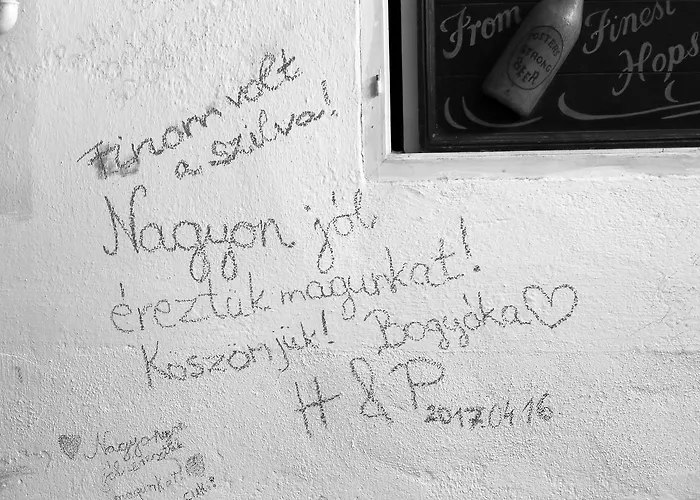 From Finest
Hops
STRONG
BEER
Finom volt
a szilva!
Nagyon jól
éreztük magunkat!
Köszönjük! Bogyóka♡
H & P 2017.04.16.
Nagyon
jól éreztük
magunkat!